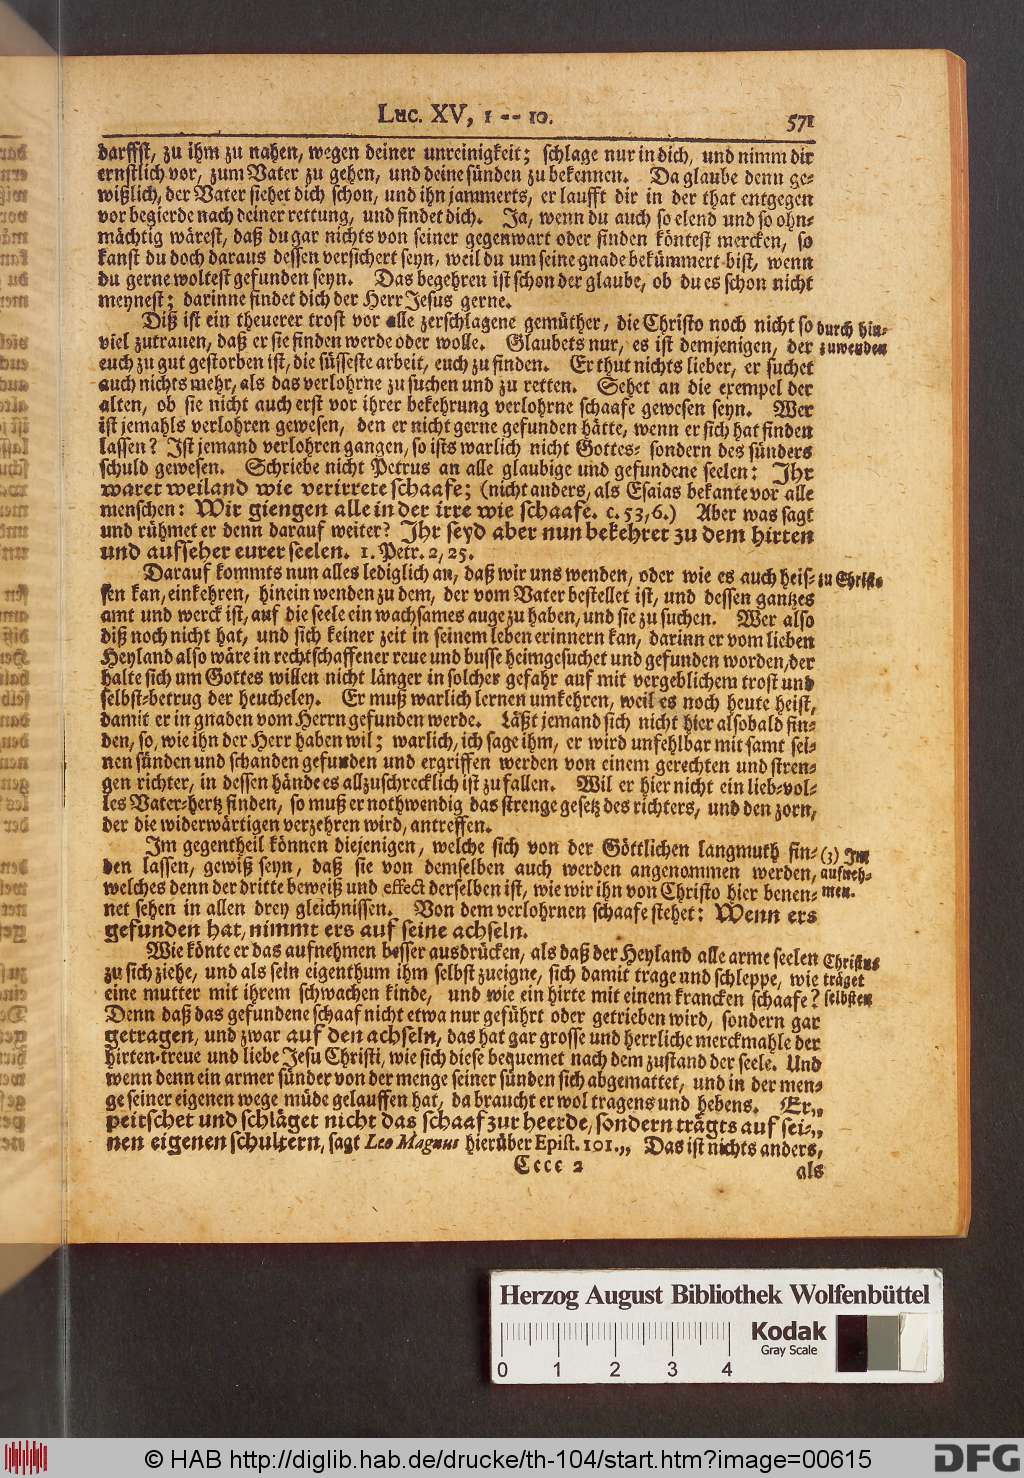 Luc. XV, 1 -- 10. 571
darffst, zu ihm zu nahen, wegen deiner unreinigkeit; schlage nur in dich, und nimm dir
ernstlich vor, zum Vater zu gehen, und deine sünden zu bekennen. Da glaube denn ge-
wißlich, der Vater siehet dich schon, und ihn jammerts, er laufft dir in der that entgegen
vor begierde nach deiner rettung, und findet dich. Ja, wenn du auch so elend und so ohn-
mächtig wärest, daß du gar nichts von seiner gegenwart oder finden köntest mercken, so
kanst du doch daraus dessen versichert seyn, weil du um seine gnade bekümmert bist, wenn
du gerne woltest gefunden seyn. Das begehren ist schon der glaube, ob du es schon nicht
meynest; darinne findet dich der Herr Jesus gerne.
Diß ist ein theurer trost vor alle zerschlagene gemüther, die Christo noch nicht so
durch hin-
viel zutrauen, daß er sie finden werde oder wolle. Glaubets nur, es ist demjenigen, der
zuwenden
euch zu gut gestorben ist, die süsseste arbeit, euch zu finden. Er thut nichts lieber, er suchet
auch nichts mehr, als das verlohrne zu suchen und zu retten. Sehet an die exempel der
alten, ob sie nicht auch erst vor ihrer bekehrung verlohrne schaafe gewesen seyn. Wer
ist jemahls verlohren gewesen, den er nicht gerne gefunden hätte, wenn er sich hat finden
lassen? Ist jemand verlohren gangen, so ists warlich nicht Gottes- sondern des sünders
schuld gewesen. Schriebe nicht Petrus an alle glaubige und gefundene seelen: Ihr
waret weiland wie verirrete schaafe; (nicht anders, als Esaias bekante vor alle
menschen: Wir giengen alle in der irre wie schaafe. c. 53, 6.) Aber was sagt
und rühmet er denn darauf weiter? Ihr seyd aber nun bekehret zu dem hirten
und aufseher eurer seelen. 1. Petr. 2, 25.
Darauf kommts nun alles lediglich an, daß wir uns wenden, oder wie es auch heis-
zu Christo
sen kan, einkehren, hinein wenden zu dem, der vom Vater bestellet ist, und dessen gantzes
amt und werck ist, auf die seele ein wachsames auge zu haben, und sie zu suchen. Wer also
diß noch nicht hat, und sich keiner zeit in seinem leben erinnern kan, darinn er vom lieben
Heyland also wäre in rechtschaffener reue und busse heimgesuchet und gefunden worden, der
halte sich um Gottes willen nicht länger in solcher gefahr auf mit vergeblichem trost und
selbst-betrug der heucheley. Er muß warlich lernen umkehren, weil es noch heute heist,
damit er in gnaden vom Herrn gefunden werde. Läßt jemand sich nicht hier alsobald fin-
den, so, wie ihn der Herr haben wil; warlich, ich sage ihm, er wird unfehlbar mit samt sei-
nen sünden und schanden gefunden und ergriffen werden von einem gerechten und stren-
gen richter, in dessen hände es allzuschrecklich ist zu fallen. Wil er hier nicht ein lieb-vol-
les Vater-hertz finden, so muß er nothwendig das strenge gesetz des richters, und den zorn,
der die widerwärtigen verzehren wird, antreffen.
Im gegentheil können diejenigen, welche sich von der Göttlichen langmuth fin-
(3) Im
den lassen, gewiß seyn, daß sie von demselben auch werden angenommen werden,
aufneh-
welches denn der dritte beweiß und effect derselben ist, wie wir ihn von Christo hier benen-
men.
net sehen in allen drey gleichnissen. Von dem verlohrnen schaafe stehet: Wenn ers
gefunden hat, nimmt ers auf seine achseln.
Wie könte er das aufnehmen besser ausdrücken, als daß der Heyland alle arme seelen
Christus
zu sich ziehe, und als sein eigenthum ihm selbst zueigne, sich damit trage und schleppe, wie
träget
eine mutter mit ihrem schwachen kinde, und wie ein hirte mit einem krancken schaafe?
selbsten
Denn daß das gefundene schaaf nicht etwa nur geführt oder getrieben wird, sondern gar
getragen, und zwar auf den achseln, das hat gar grosse und herrliche merckmahle der
hirten-treue und liebe Jesu Christi, wie sich diese bequemet nach dem zustand der seele. Und
wenn denn ein armer sünder von der menge seiner sünden sich abgemattet, und in der men-
ge seiner eigenen wege müde gelauffen hat, da braucht er wol tragens und hebens. Er„
peitschet und schläget nicht das schaaf zur heerde, sondern trägts auf sei-„
nen eigenen schultern, sagt Leo Magnus hierüber Epist. 101.„ Das ist nichts anders,
Cccc 2 als
Herzog August Bibliothek Wolfenbüttel
Kodak
Gray Scale
0 1 2 3 4
© HAB http://diglib.hab.de/drucke/th-104/start.htm?image=00615
DFG